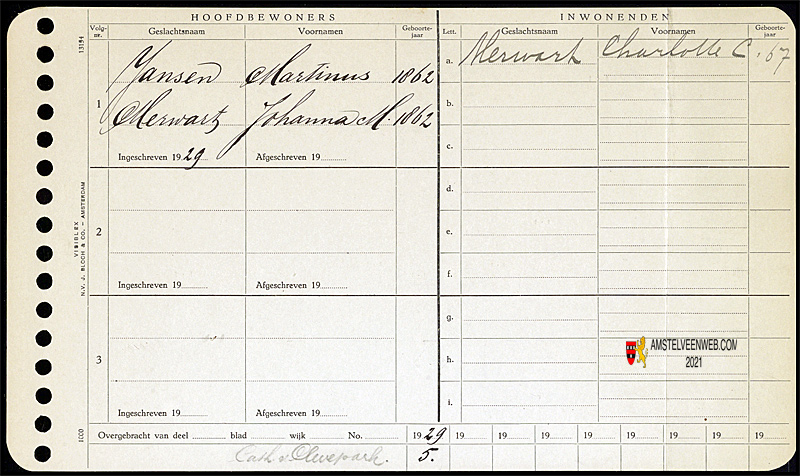 HOOFDBEWONERS
Volg-nr. Geslachtsnaam Voornamen Geboorte-jaar
1
Jansen Martinus 1862
Merwart Johanna M. 1862
Ingeschreven 1929 Afgeschreven 19
2
Ingeschreven 19 Afgeschreven 19
3
Ingeschreven 19 Afgeschreven 19
INWONENDEN
Lett. Geslachtsnaam Voornamen Geboorte-jaar
a. Merwart Charlotte C. 67
b.
c.
d.
e.
f.
g.
h.
i.
AMSTELVEENWEB.COM
2021
Overgebracht van deel blad wijk No. 1929 19 19 19 19 19 19 19 19
Cath. v. Clevepark. 5.
13194
VISIBLEX
N.V. J. BLOCH & CO. - AMSTERDAM